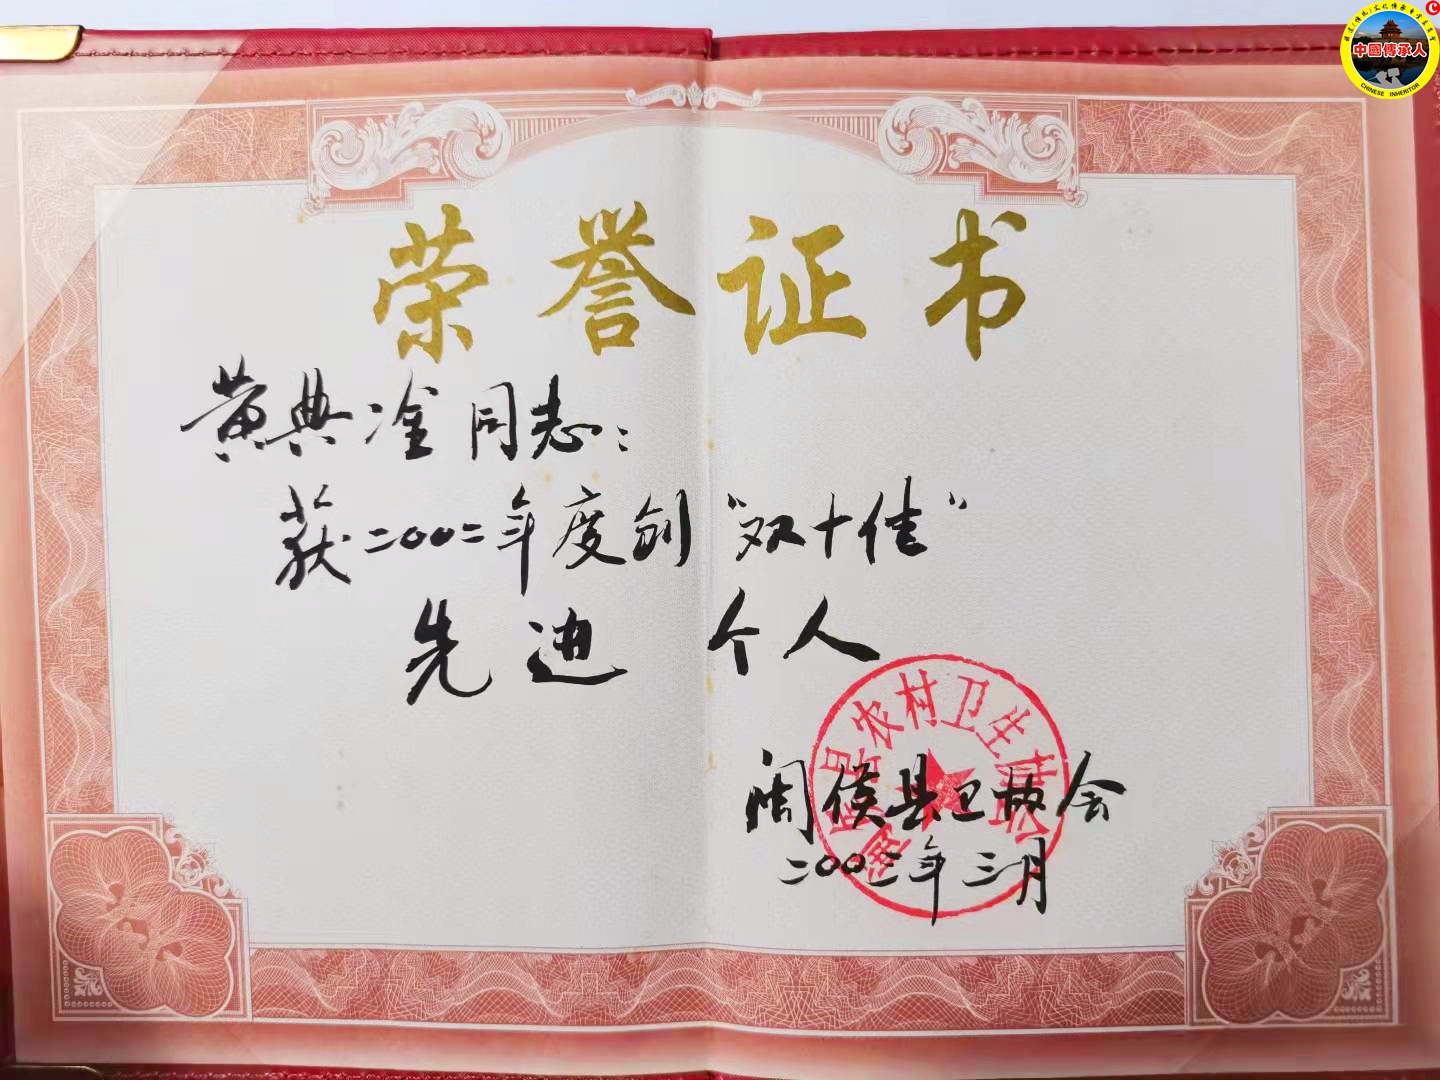 中國傳承人
CHINESE INHERITOR
荣誉证书
黄典淦同志：
获二00二年度创“双十佳”
先进个人
闽侯县卫协会
二00三年三月
县农村卫生